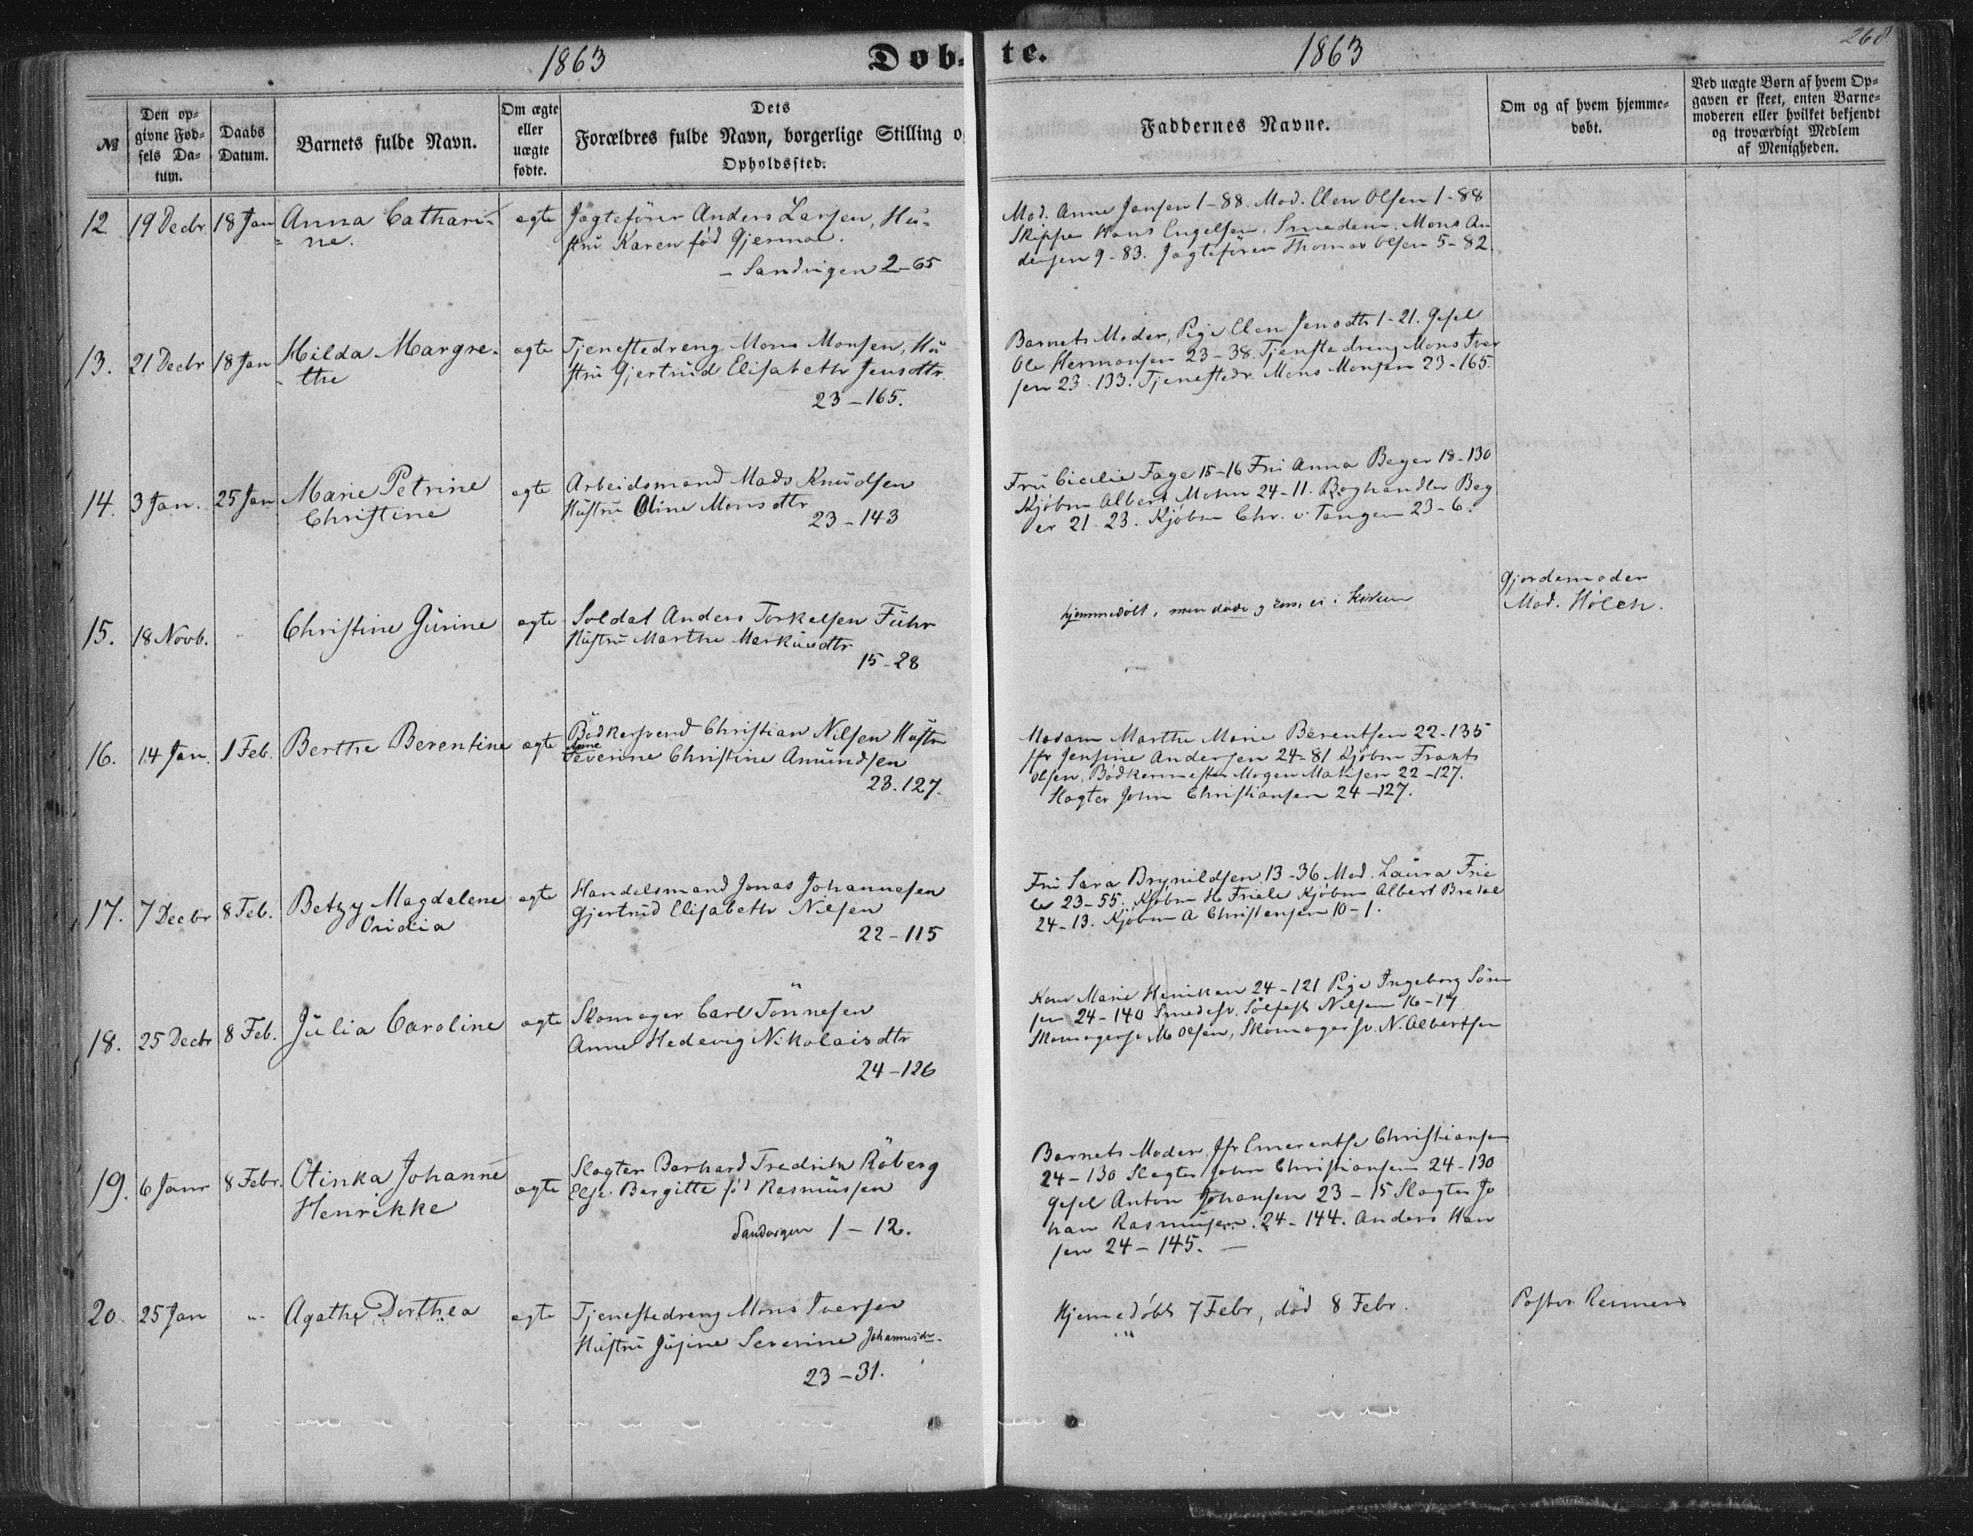 1863
Døb-
te.
1863
268
№
Den op-
givne Fød-
sels Da-
tum.
Daabs
Datum.
Barnets fulde Navn.
Om ægte
eller
uægte
fødte.
Dets
Forældres fulde Navn, borgerlige Stilling o
Opholdssted.
Faddernes Navne.
Om og af hvem hjemme-
døbt.
Ved uægte Børn af hvem Op-
gaven er skeet, enten Barne-
moderen eller hvilket bekjendt
og troværdigt Medlem
af Menigheden.
12 19 Decbr. 18 Jan Anna Cathari-
ne.
ægte
Jagtefører Anders Larsen, Hu-
stru Karen fød Gjermoe.
– Sandvigen 2–65
Mad. Anne Jansen 1–88. Mad. Elen Olsen 1–88
Skipper Hans Engelsen. Smedem. Mons An
dersen 9–83. Jagtefører Thomas Olsen 5–82.
13. 21 Decbr 18 Jan Hilda Margre-
the
ægte
Tjenestedreng Mons Monsen, Hu
stru Gjertrud Elisabeth Jensdtr
23–165.
Barnets Moder, Pige Elen Jensdtr 1–21. Gesel
Ole Hermansen 23–38. Tjenstedreng Mons Iver
sen 23–133. Tjenestedr. Mons Monsen 23–165.
14. 3 Jan. 25 Jan Marie Petrine
Christine
ægte
Arbeidsmand Mads Knudsen
Hustru Oline Monsdtr
23–143
Fru Cicilie Fage 15–16 Fru Anna Beyer 18–130
Kjøbm Albert Mohn 24–11. Boghandler Bey
er 21–23. Kjøbm Chr. v. Tangen 23–6.
15. 18 Novb. Christine Gurine
ægte
Soldat Anders Torkelsen Fuhr
Hustru Marthe Markusdtr
15–28
hjemmedøbt, men døde g kom ei i Kirken
Gjordemoder
Mad. Holch.
16. 14 Jan. 1 Feb. Berthe Berentine
ægte
Bødkersvend Christian Nilsen Hustru
Anne
Severine Christine Amundsen
23.127.
Madam Marthe Marie Berentsen 22–135
Jfr Jensine Andersen 24–81 Kjøbm Frants
Olsen, Bødkermester Mogen Matisen 22–127.
Slagter John Christiansen 24–127.
17. 7 Decbr 8 Feb. Betzy Magdalene
Ovidia
ægte
Handelsmand Jonas Johannesen
Gjertrud Elisabeth Nilsen
22–115
Fru Sara Brynildsen 13–36 Mad. Laura Frie
le 23–55. Kjøbm H Friele Kjøbm Albert Brekke
24–13. Kjøbm A Christensen 10–1.
18. 25 Decbr 8 Feb. Julia Caroline
ægte
Skomager Carl Tönnesen
Anne Hedevig Nikolaisdtr
24–126
Kone Marie Henriksen 24–121 Pige Ingeborg Sören
sen 24–140 Smedesv. Sölfest Nilsen 16–17
Skomagersv M Olsen, Skomagersv. N. Albertsen
19. 6 Janr 8 Febr. Otinka Johanne
Henrikke
ægte
Slagter Barhard Fredrik Röberg
Else Bergitte fød Rasmussen
Sandvigen 1–12.
Barnets Moder. Jfr Emerentse Christiansen
24–130 Slagter John Christiansen 24–130
Gesel Anton Johansen 23–15 Slagter Jo
han Rasmusen. 24–144. Anders Han
sen 24–145. –
20. 25 Jan Agathe Dorthea
ægte
Tjenestedreng Mons Iversen
Hustru Jusine Severine Johannesdtr.
23–31.
Hjemedøbt 7 Febr, död 8 Febr.
Pastor Reimers